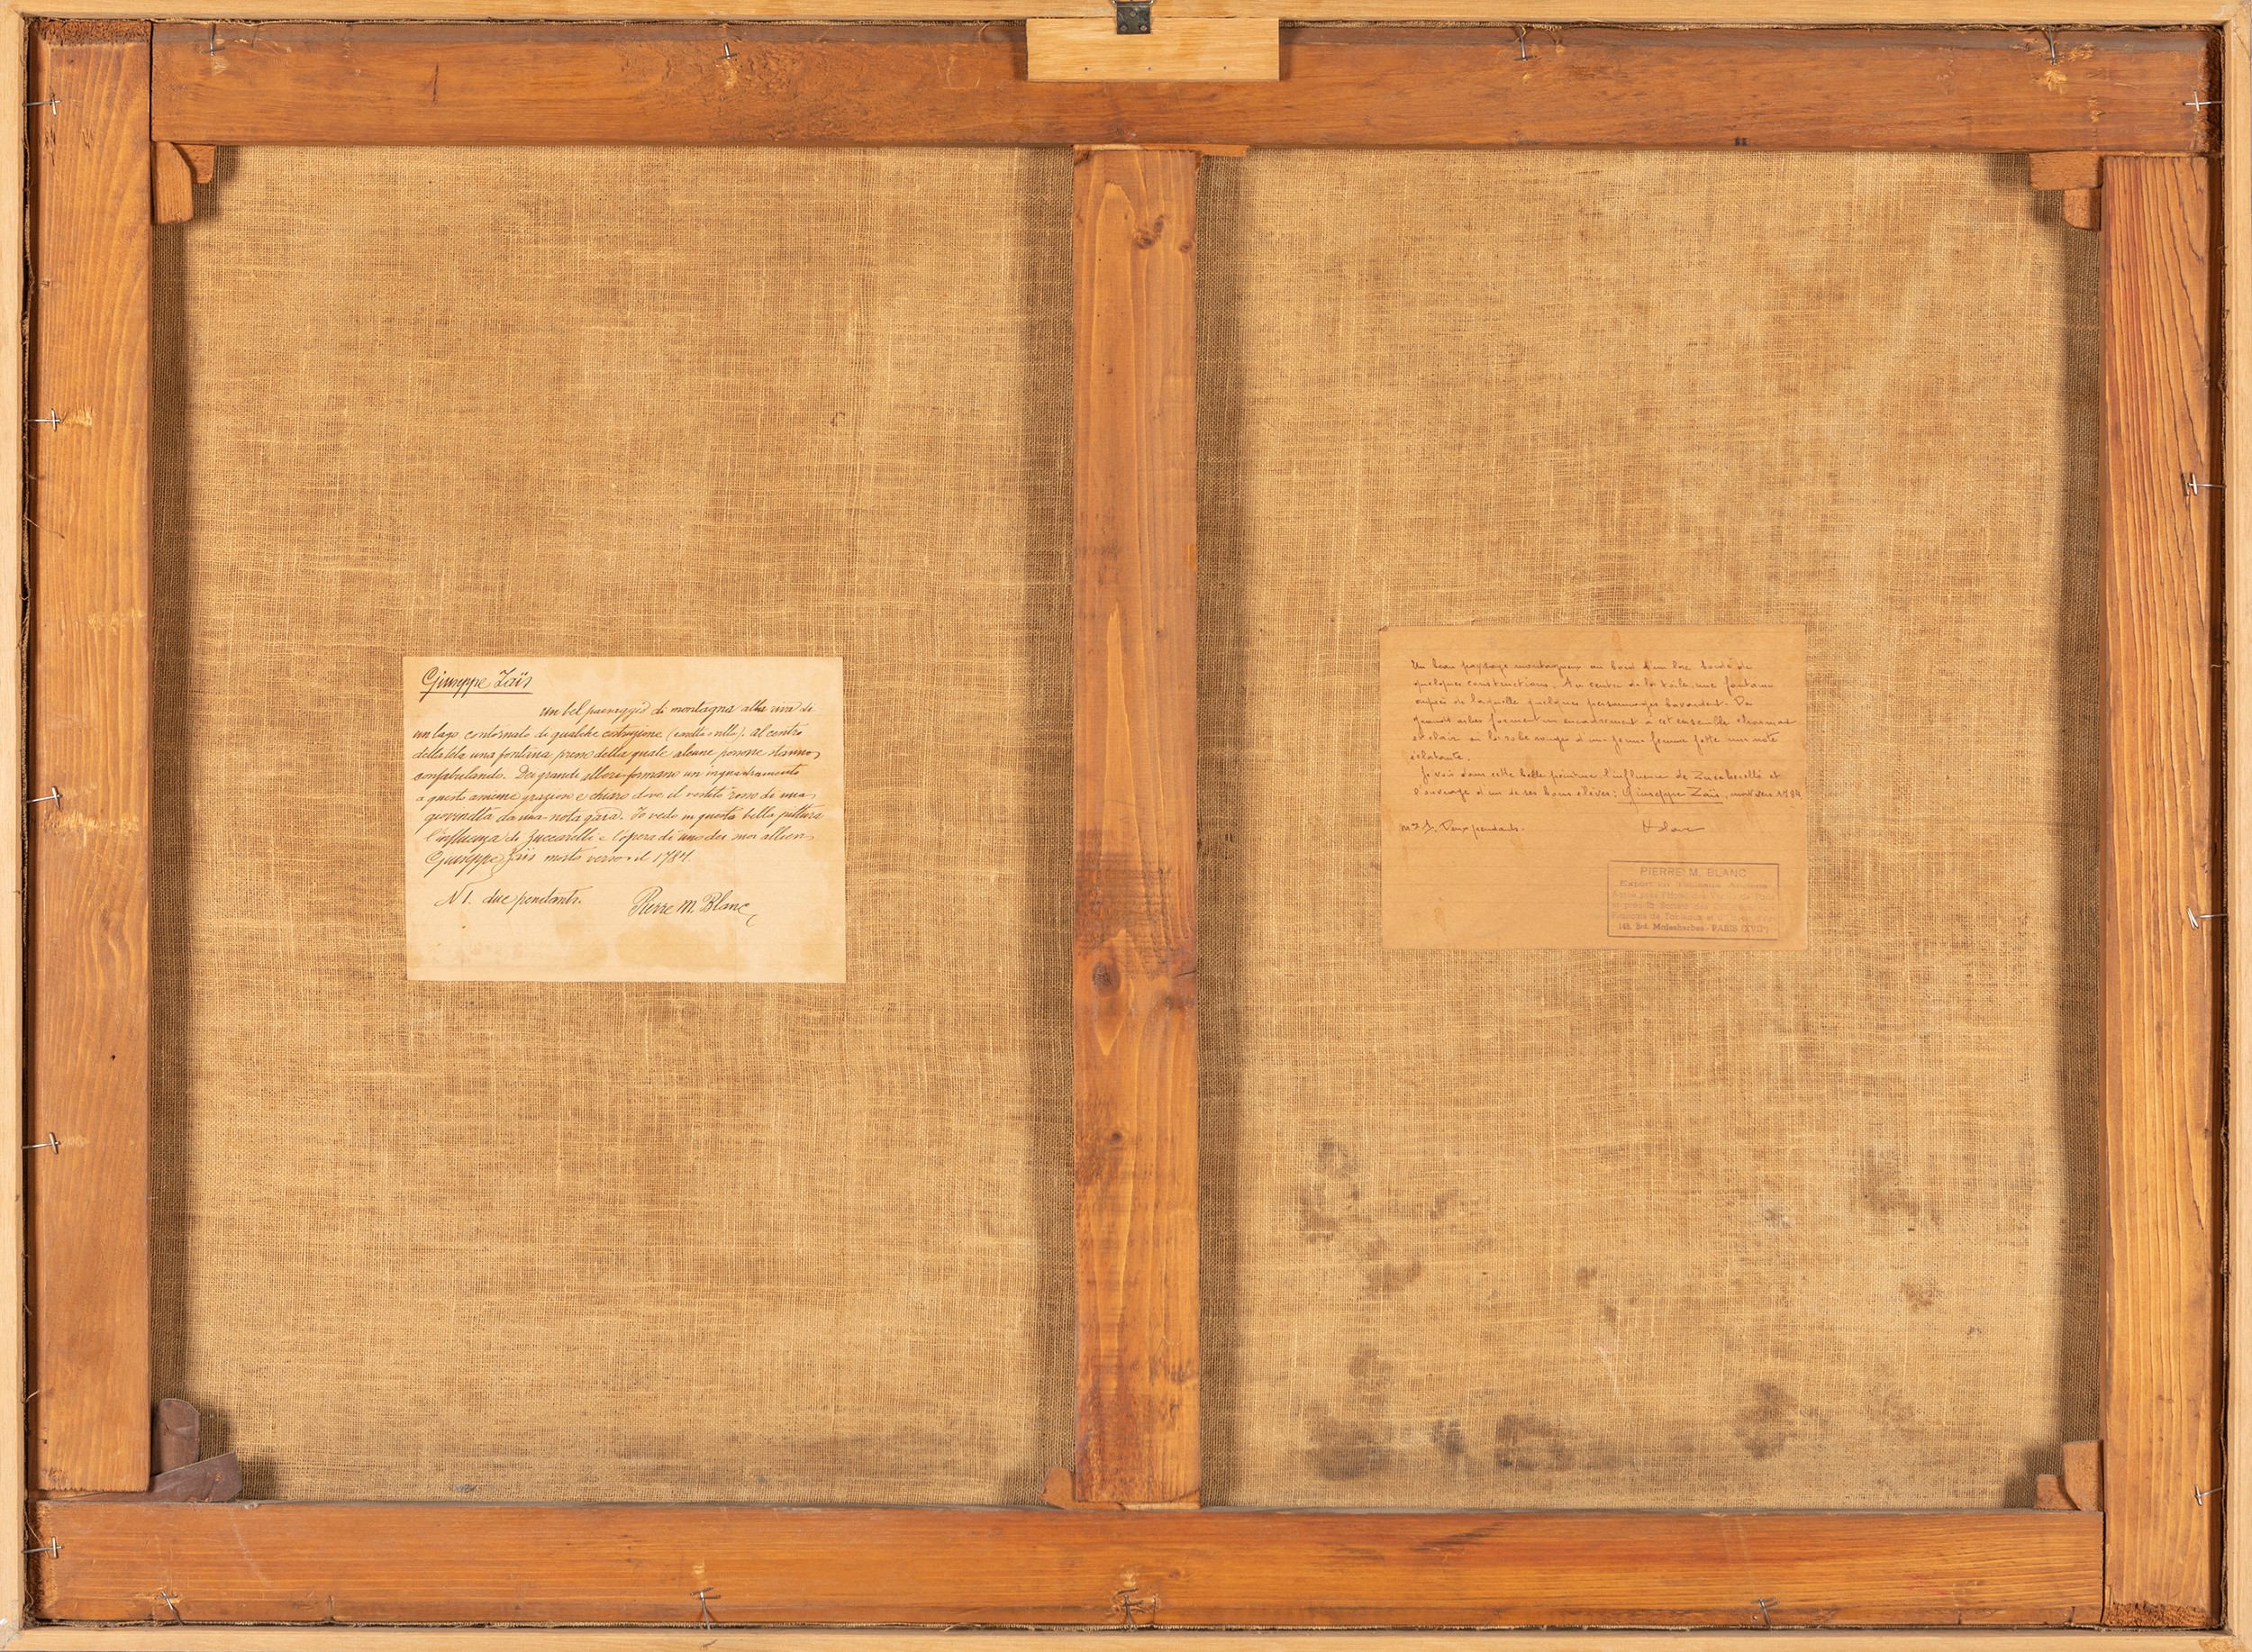 Giuseppe Zaïs
un bel paesaggio di montagna alla riva di
un lago contornato di qualche costruzione al centro
della tela una fontana, presso della quale alcune persone stanno
confabulando. Dei grandi alberi formano un inquadramento
a questo insieme grazioso e chiaro dove il vestito rosso di una
giovinetta da una nota gaia. Io vedo in questa bella pittura
l'influenza di Zuccarelli e l'opera di uno dei suoi allievi
Giuseppe Zaïs morto verso il 1784.
N 1. due pendants.
Pierre M. Blanc
Un beau paysage montagneux au bord d'un lac bordé de
quelques constructions. Au centre de la toile, une fontaine
auprès de laquelle quelques personnages bavardent. De
grands arbres forment un encadrement à cet ensemble charmant
et clair où la robe rouge d'une jeune femme jette une note
éclatante.
Je vois dans cette belle peinture l'influence de Zuccharelli et
l'ouvrage d'un de ses bons élèves: Giuseppe Zaïs, mort vers 1784
n° 1. Deux pendants.
PIERRE M. BLANC
Expert en Tableaux Anciens
Français de Tableaux et
148, Bd. Malesherbes - PARIS (XVIIe)